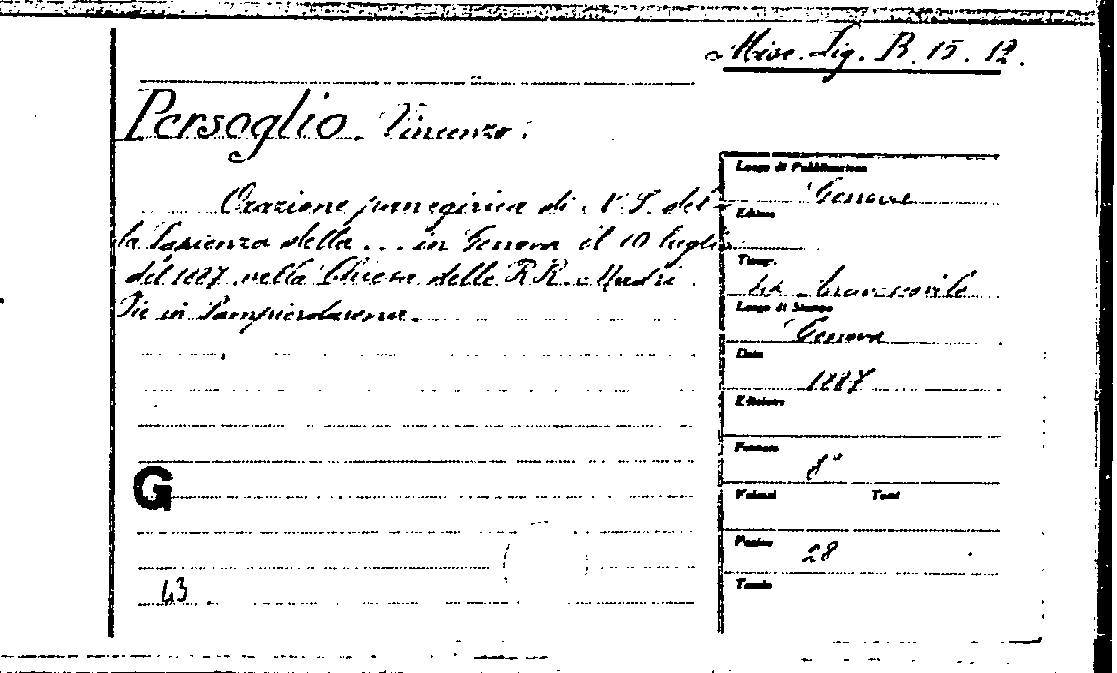 Misc. Lig. B. 15. 12.
Persoglio Vincenzo.
Orazione panegirica di N. S. del-
la Sapienza della ... in Genova il 10 luglio
del 1887 nella Chiesa delle RR. Madri
Pie in Sampierdarena.
Luogo di Pubblicazione
Genova
Editore
Tipogr.
Luogo di Stampa
Genova
Data
1887
Edizione
Formato
8°
Volumi Tomi
Pagine
28
Tavole
G
43